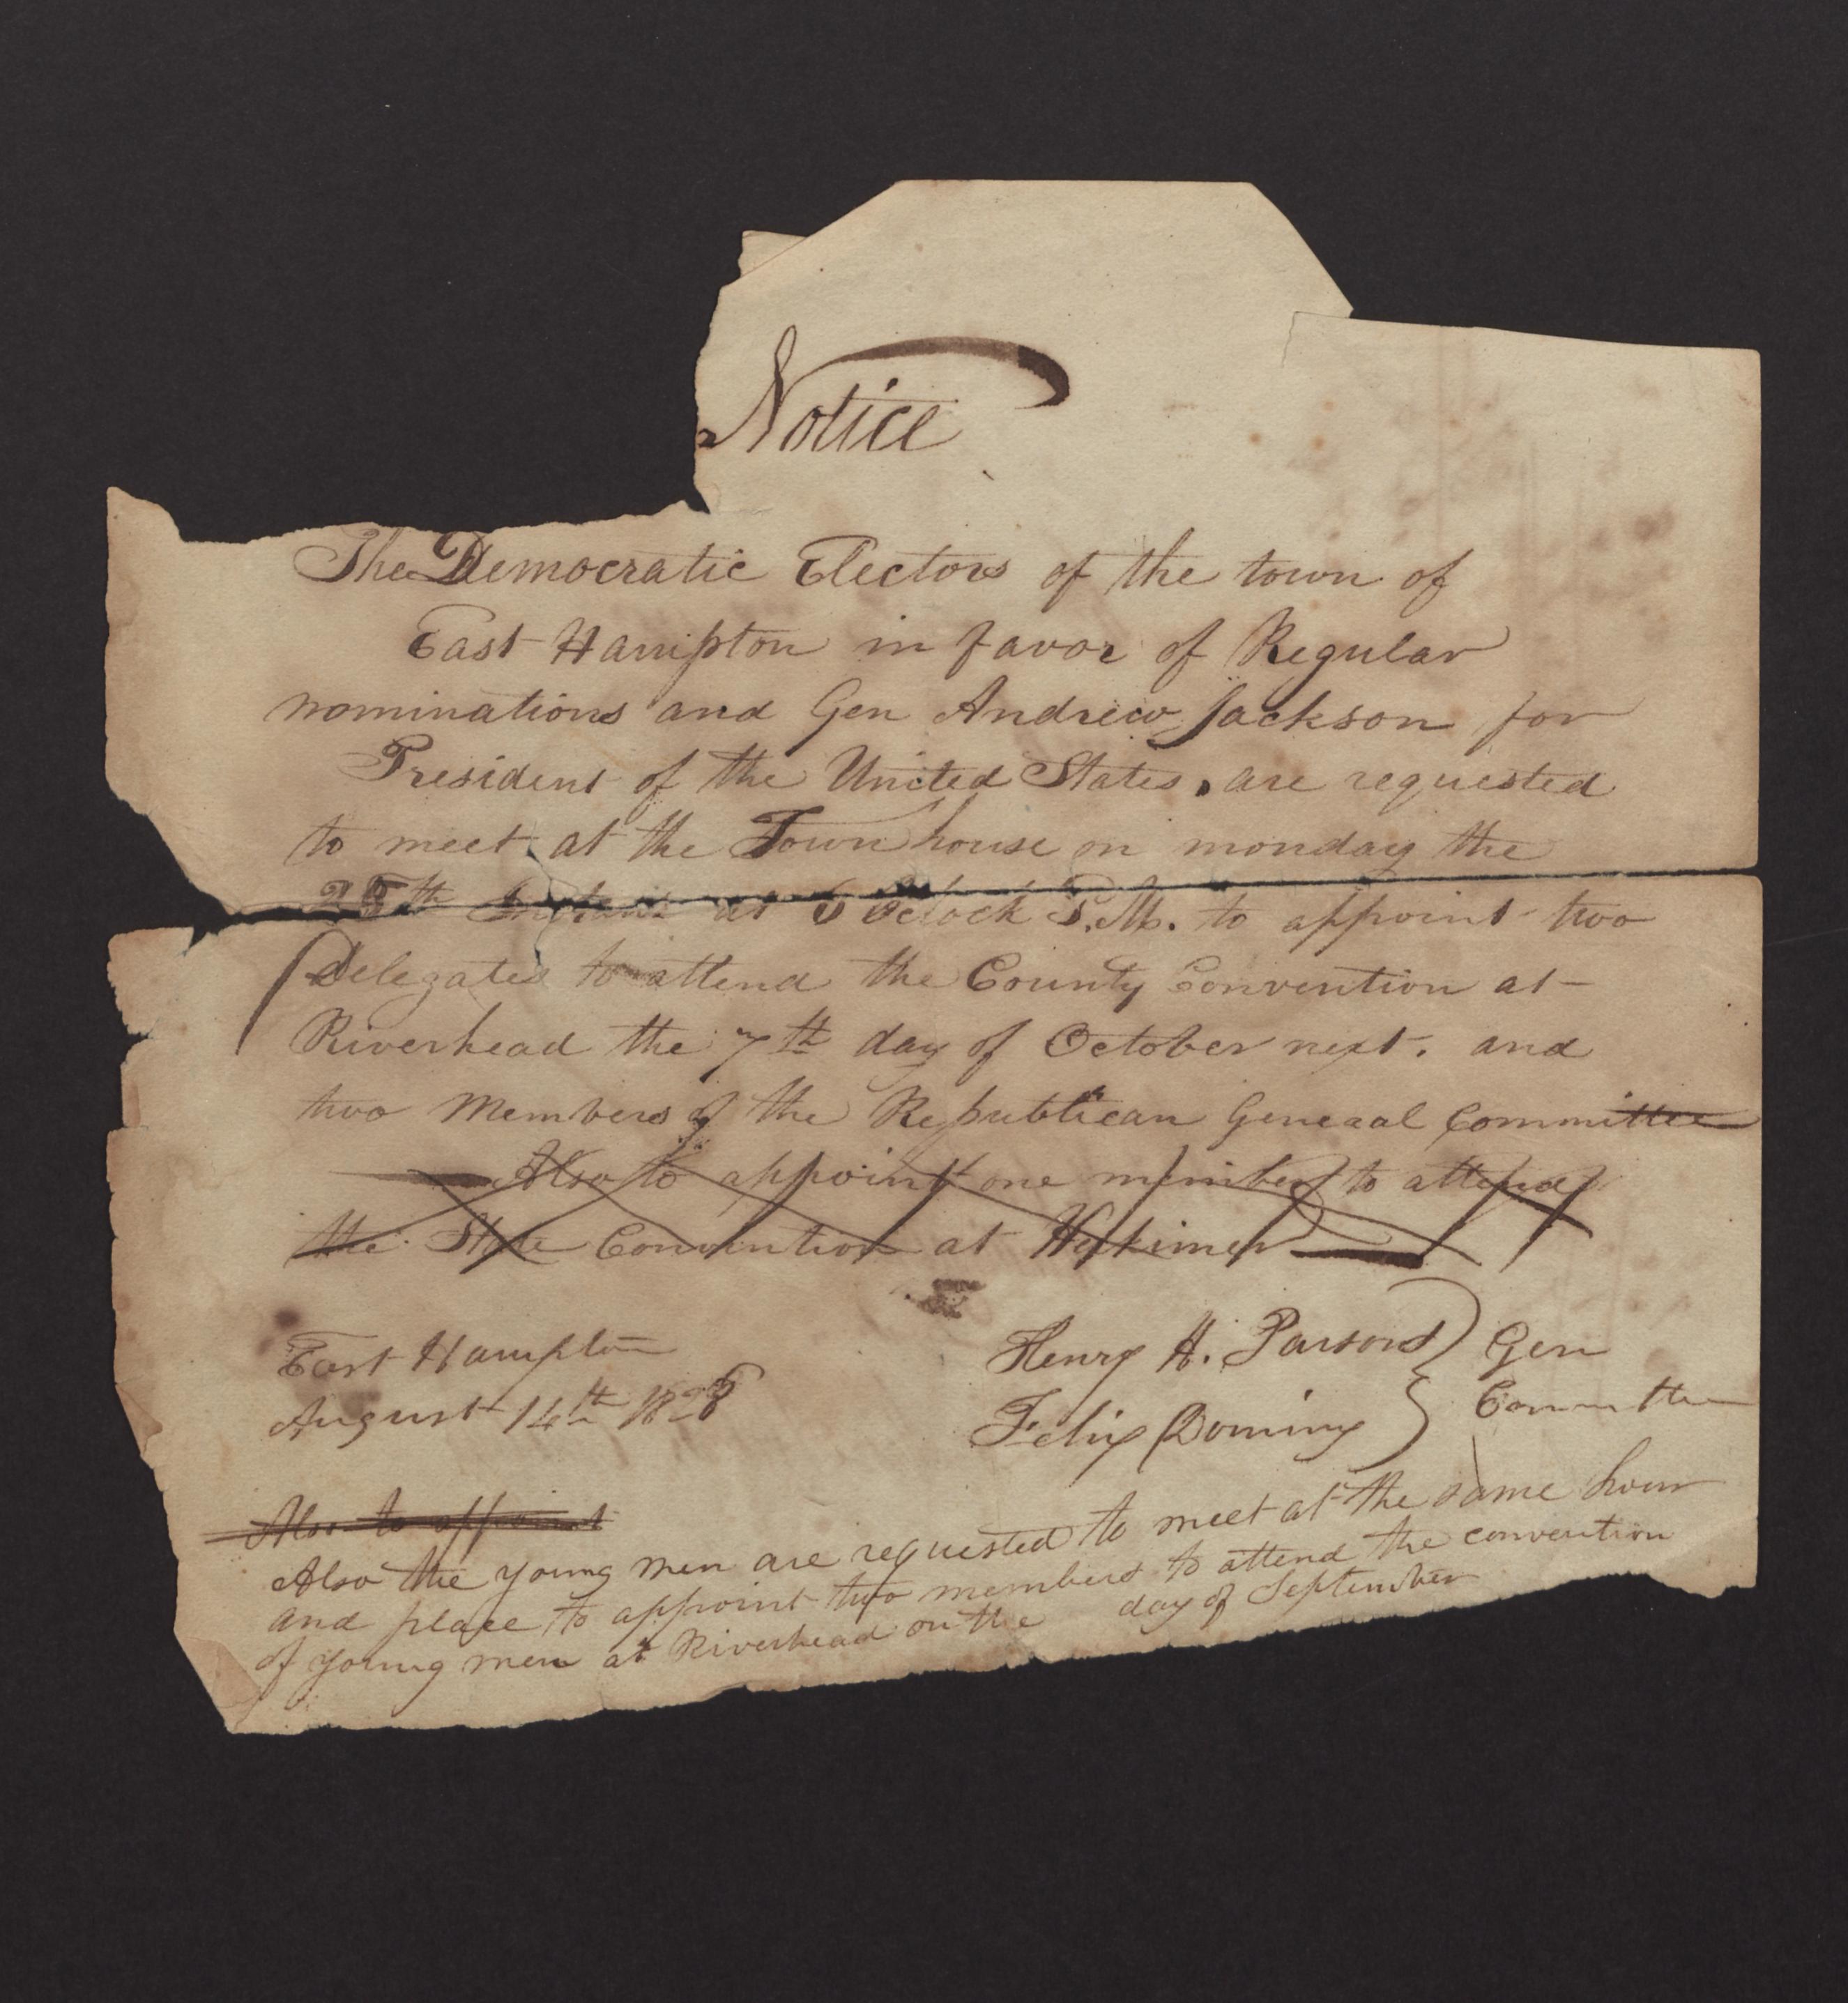 Notice
The Democratic Electors of the town of
East Hampton in favor of Regular
nominations and Gen Andrew Jackson for
President of the United States, are requested
to meet at the Town house on monday the
25th Instant at 5 Oclock P.M. to appoint two
Delegates to attend the County Convention at
Riverhead the 7th day of October next. and
two Members of the Republican General Committee
Also to appoint one member to attend
the State Convention at Herkimer
East Hampton
August 14th 1828
Henry H. Parsons
Felix Dominy
Gen
Committee
Also to appoint
Also the young men are requested to meet at the same hour
and place to appoint two members to attend the convention
of young men at Riverhead on the day of September